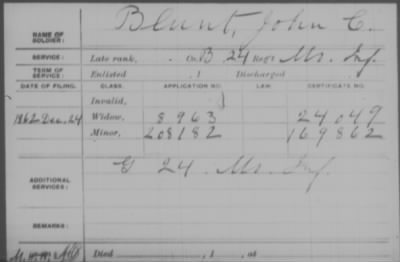 NAME OF SOLDIER: Blunt, John C.
SERVICE: Late rank, Co. B 24 Reg't Inf.
TERM OF SERVICE: Enlisted , 1 Discharged
DATE OF FILING. CLASS. APPLICATION NO. LAW. CERTIFICATE NO.
Invalid,
1862 Dec. 24 Widow, 8963 24049
Minor, 208182 169862
ADDITIONAL SERVICES: G 24 Inf.
REMARKS:
Died , 1 , at